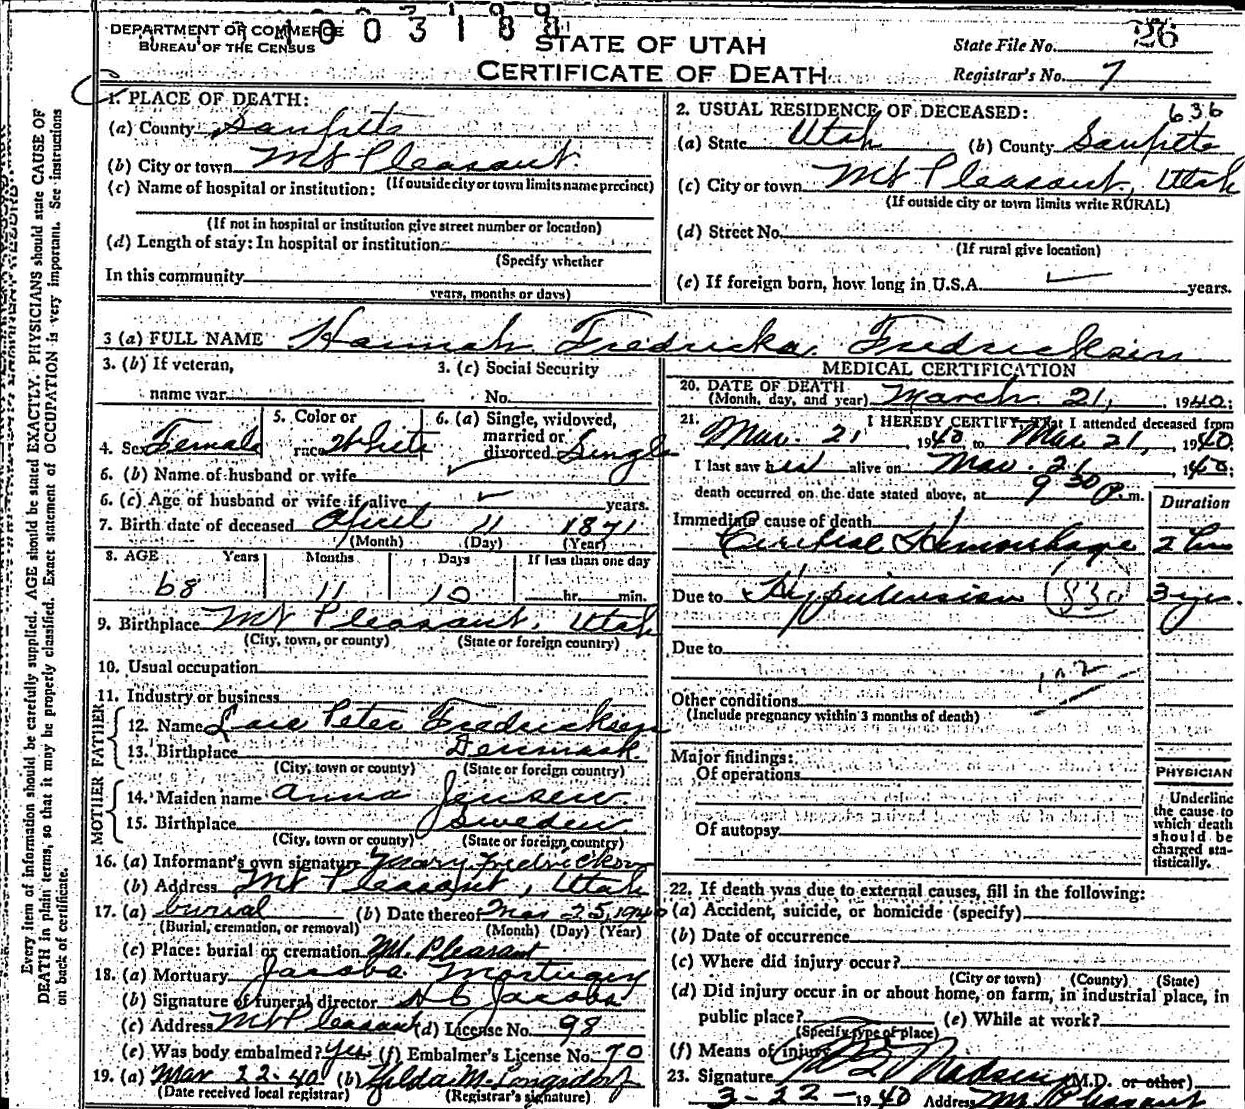 DEPARTMENT OF COMMERCE
BUREAU OF THE CENSUS
STATE OF UTAH
CERTIFICATE OF DEATH
State File No. 26
Registrar's No. 7
Every item of information should be carefully supplied. AGE should be stated EXACTLY. PHYSICIANS should state CAUSE OF
DEATH in plain terms, so that it may be properly classified. Exact statement of OCCUPATION is very important. See instructions
on back of certificate.
1. PLACE OF DEATH:
(a) County Sanpete
(b) City or town Mt Pleasant
(If outside city or town limits name precinct)
(c) Name of hospital or institution:
(If not in hospital or institution give street number or location)
(d) Length of stay: In hospital or institution
(Specify whether
In this community
years, months or days)
2. USUAL RESIDENCE OF DECEASED: 636
(a) State Utah (b) County Sanpete
(c) City or town Mt Pleasant, Utah
(If outside city or town limits write RURAL)
(d) Street No.
(If rural give location)
(e) If foreign born, how long in U.S.A. years.
3 (a) FULL NAME Hannah Fredricka Fredricksen
3. (b) If veteran, name war
3. (c) Social Security No.
4. Sex Female
5. Color or race White
6. (a) Single, widowed, married or divorced Single
6. (b) Name of husband or wife
6. (c) Age of husband or wife if alive years.
7. Birth date of deceased April 11 1871
(Month) (Day) (Year)
8. AGE Years Months Days If less than one day
68 11 10 hr. min.
9. Birthplace Mt Pleasant, Utah
(City, town, or county) (State or foreign country)
10. Usual occupation
11. Industry or business
FATHER
12. Name Lars Peter Fredricksen
13. Birthplace Denmark
(City, town or county) (State or foreign country)
MOTHER
14. Maiden name Anna Jensen
15. Birthplace Sweden
(City, town or county) (State or foreign country)
16. (a) Informant's own signature Mary Fredrickson
(b) Address Mt Pleasant, Utah
17. (a) burial (b) Date thereof Mar 25, 1940
(Burial, cremation, or removal) (Month) (Day) (Year)
(c) Place: burial or cremation Mt. Pleasant
18. (a) Mortuary Jacobs Mortuary
(b) Signature of funeral director Jacobs
(c) Address Mt Pleasant (d) License No. 98
(e) Was body embalmed? Yes (f) Embalmer's License No. 70
19. (a) Mar 22-40 (b) Hilda M. Longsdorf
(Date received local registrar) (Registrar's signature)
MEDICAL CERTIFICATION
20. DATE OF DEATH
(Month, day, and year) March 21, 1940
21. I HEREBY CERTIFY, That I attended deceased from
Mar. 21 1940 to Mar 21, 1940
I last saw her alive on Mar. 21 1940
death occurred on the date stated above, at 9 30 P.m.
Duration
Immediate cause of death
Cerebral Hemorrhage 2 hrs
Due to Hypertension 83a 3 yrs.
Due to
102
Other conditions
(Include pregnancy within 3 months of death)
Major findings:
Of operations
Of autopsy
PHYSICIAN
Underline
the cause to
which death
should be
charged sta-
tistically.
22. If death was due to external causes, fill in the following:
(a) Accident, suicide, or homicide (specify)
(b) Date of occurrence
(c) Where did injury occur?
(City or town) (County) (State)
(d) Did injury occur in or about home, on farm, in industrial place, in
public place? (e) While at work?
(Specify type of place)
(f) Means of injury
23. Signature Madsen (M.D. or other)
3-22-1940 Address Mt Pleasant